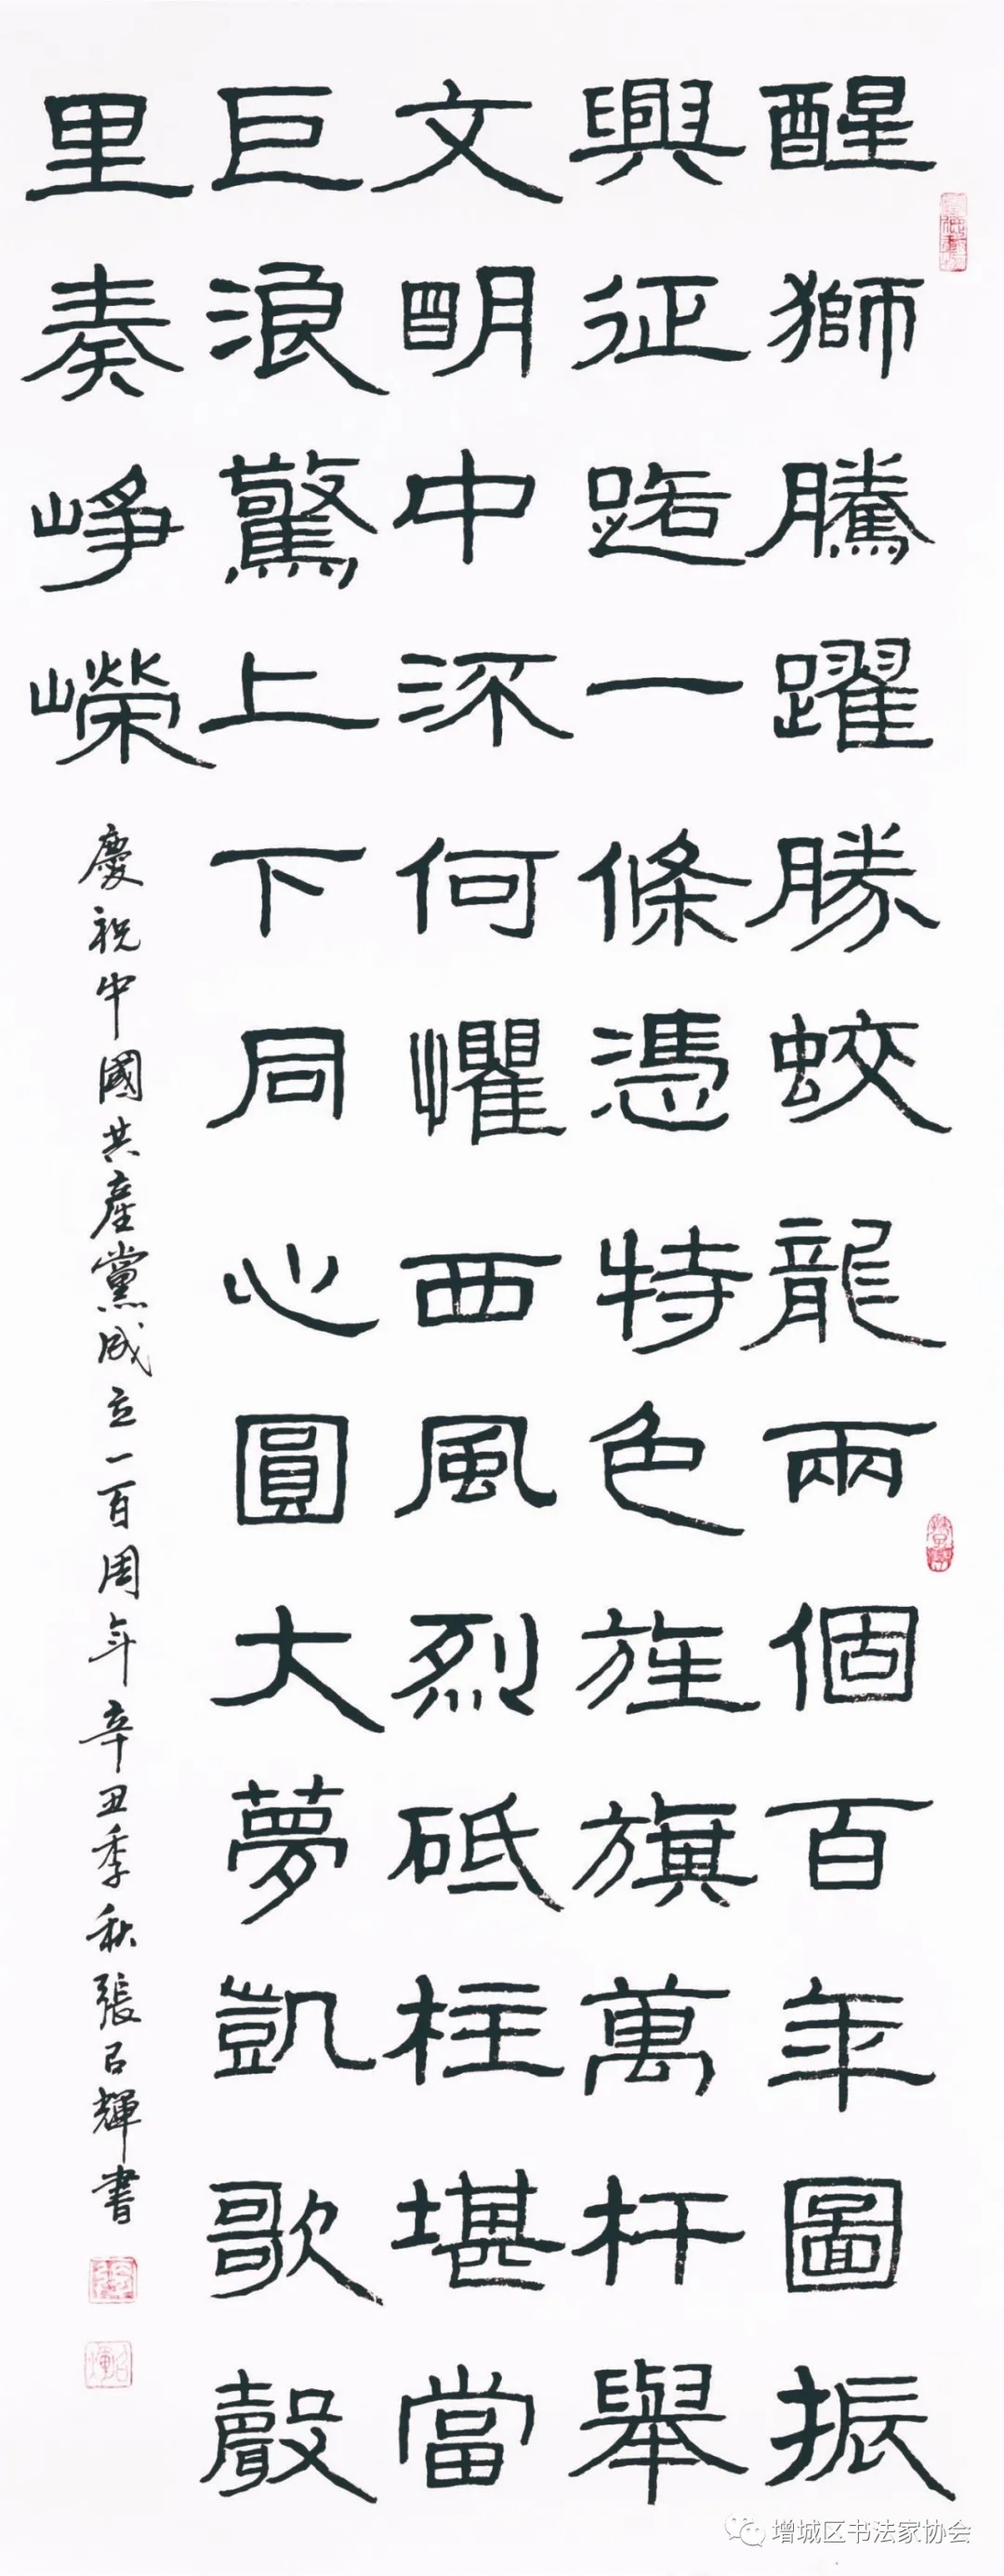 醒獅騰躍勝蛟龍兩個百年圖振
興征路一條憑特色旌旗萬杆舉
文明中流何懼西風烈砥柱堪當
巨浪驚上下同心圓大夢凱歌聲
里奏崢嶸
慶祝中國共產黨成立一百周年辛丑季秋張召輝書
增城区书法家协会